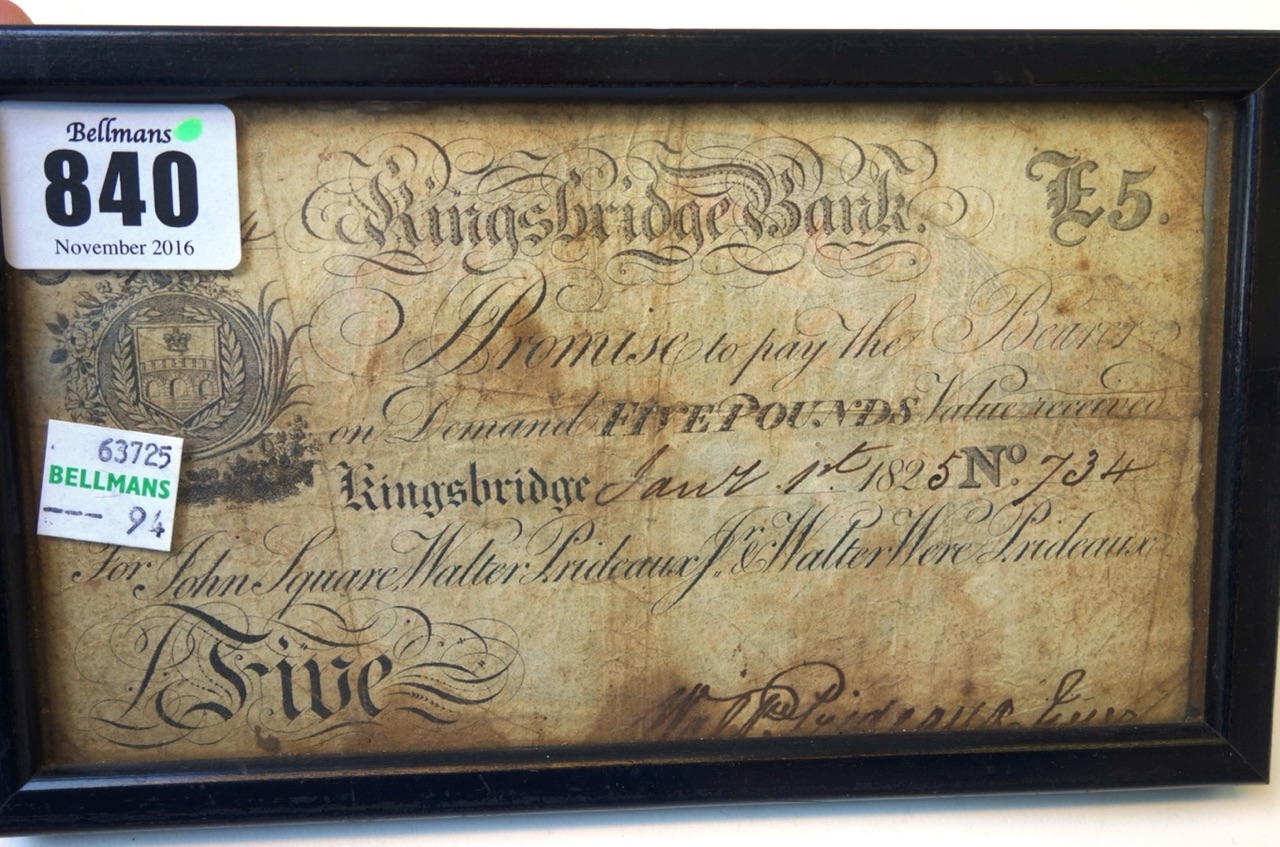 Bellmans
840
November 2016
Kingsbridge Bank. £5.
Promise to pay the Bearer
on Demand FIVE POUNDS Value received
Kingsbridge Jany 1st 1825 No. 734
For John Square, Walter Prideaux Jr. & Walter Were Prideaux
£ Five
Prideaux Junr
63725
BELLMANS
--- 94